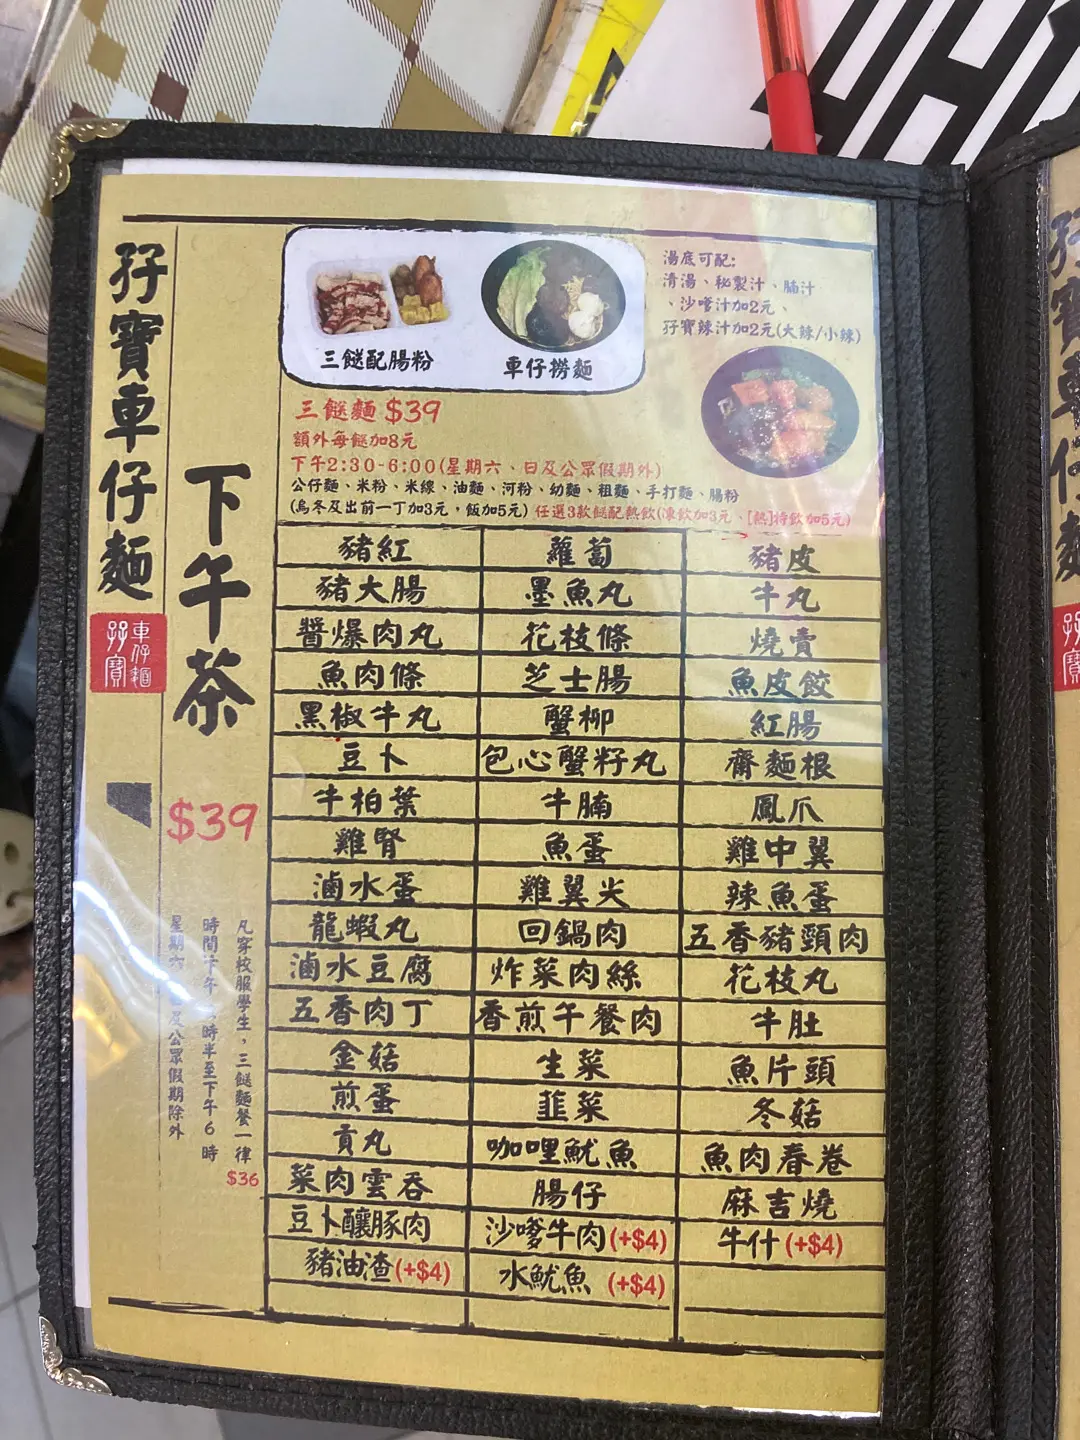 孖寶車仔麵
孖寶
車仔麵
下午茶
$39
凡穿校服學生，三餸麵餐一律
$36
三餸配腸粉
車仔撈麵
湯底可配:
清湯、秘製汁、腩汁
、沙嗲汁加2元、
孖寶辣汁加2元(大辣/小辣)
三餸麵 $39
額外每餸加8元
下午2:30-6:00(星期六、日及公眾假期外)
公仔麵、米粉、米線、油麵、河粉、幼麵、粗麵、手打麵、腸粉
(烏冬及出前一丁加3元，飯加5元) 任選3款餸配熱飲(凍飲加3元、[熱]特飲加5元)
豬紅 蘿蔔 豬皮
豬大腸 墨魚丸 牛丸
醬爆肉丸 花枝條 燒賣
魚肉條 芝士腸 魚皮餃
黑椒牛丸 蟹柳 紅腸
豆卜 包心蟹籽丸 齋麵根
牛柏葉 牛腩 鳳爪
雞腎 魚蛋 雞中翼
滷水蛋 雞翼尖 辣魚蛋
龍蝦丸 回鍋肉 五香豬頸肉
滷水豆腐 炸菜肉絲 花枝丸
五香肉丁 香煎午餐肉 牛肚
金菇 生菜 魚片頭
煎蛋 韮菜 冬菇
貢丸 咖哩魷魚 魚肉春卷
菜肉雲吞 腸仔 麻吉燒
豆卜釀豚肉 沙嗲牛肉(+$4) 牛什(+$4)
豬油渣(+$4) 水魷魚 (+$4)